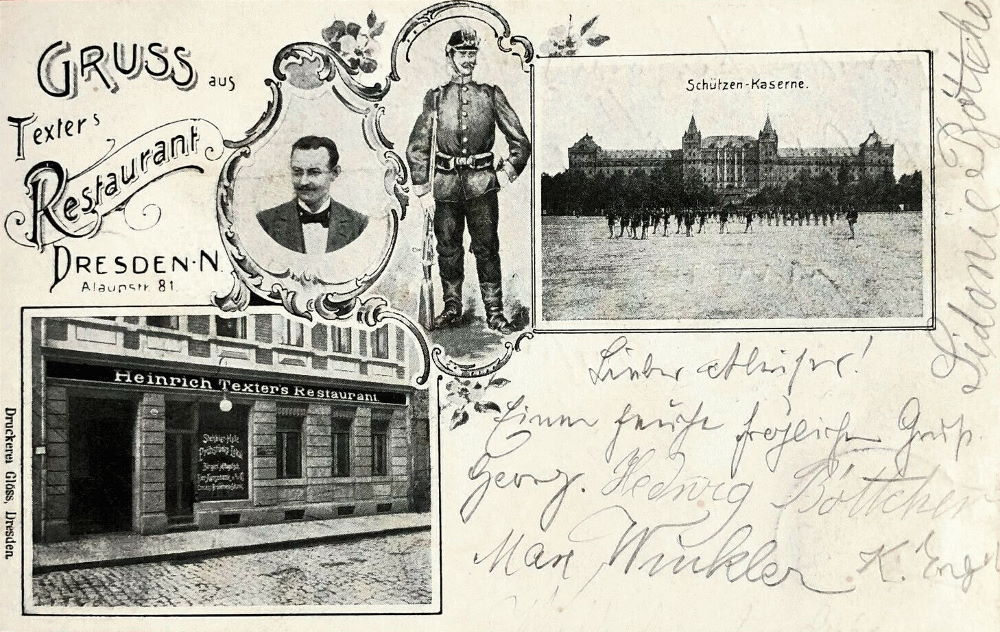 GRUSS aus
Texters
Restaurant
DRESDEN-N.
Alaunstr. 81
Schützen-Kaserne.
Heinrich Texter's Restaurant
Stehbier-Halle
Frühstücks Lokal
Druckerei Glöss, Dresden.
Lieber
Einen feucht fröhlichen Gruß.
Georg. Hedwig Böttcher
Max Winkler K. Engel
Sidonie Böttcher